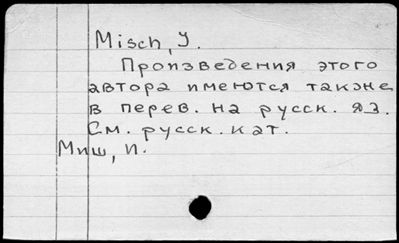 Misch, J.
Произведения этого
автора имеются также
в перев. на русск. яз.
См. русск. кат.
Миш, И.